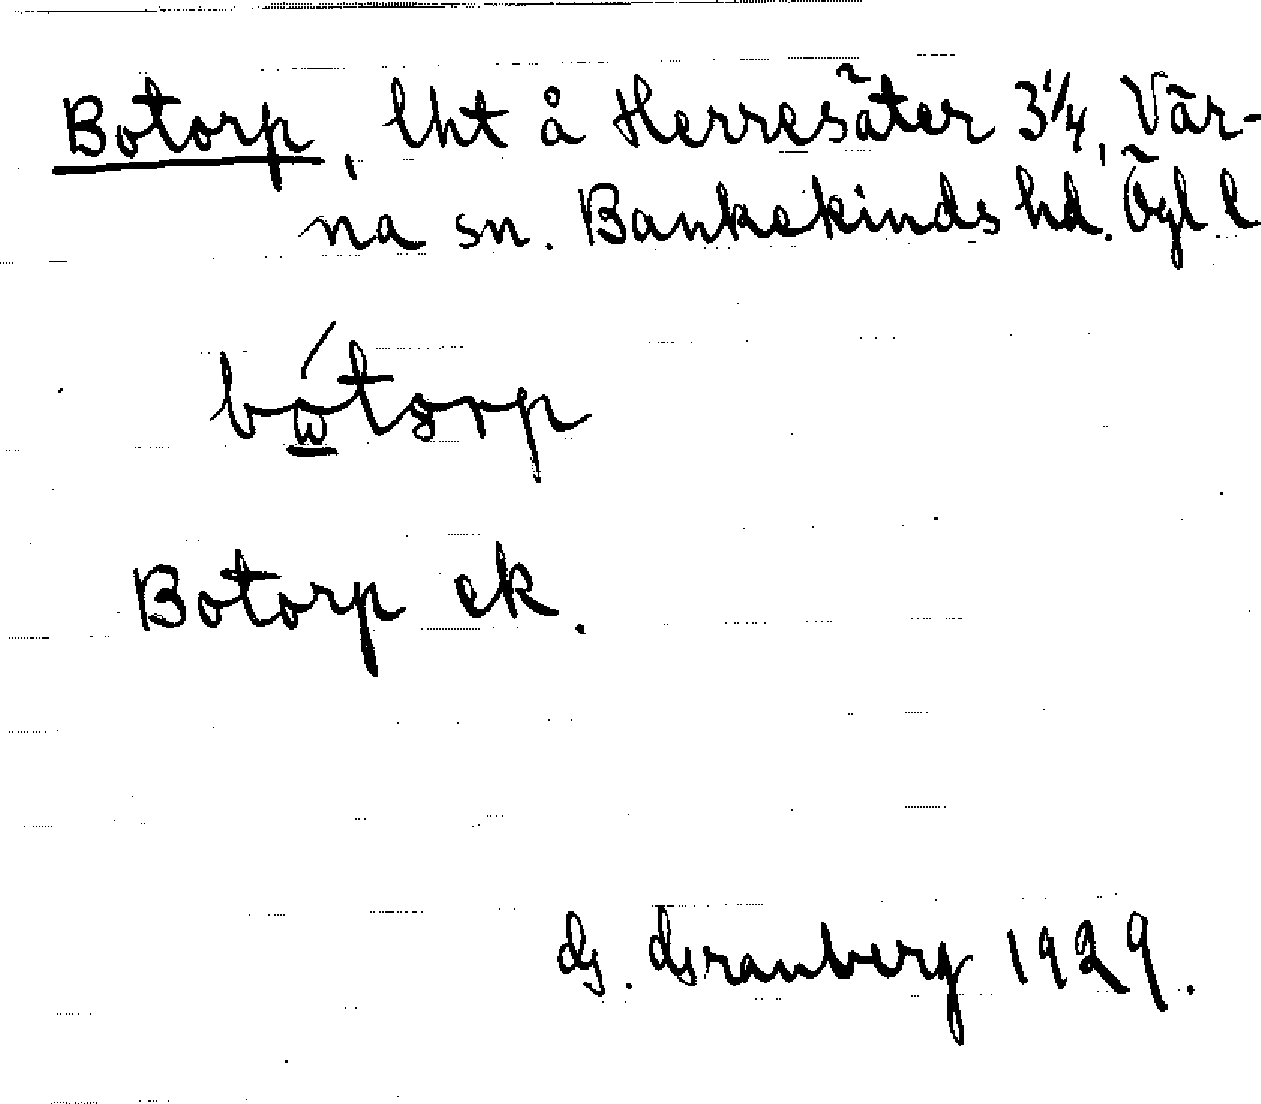 Botorp, lht å Herresäter 3 1/4, Vär-
na sn. Bankekinds hd. Ögl l
bó̲torp
Botorp ek.
G. Granberg 1929.